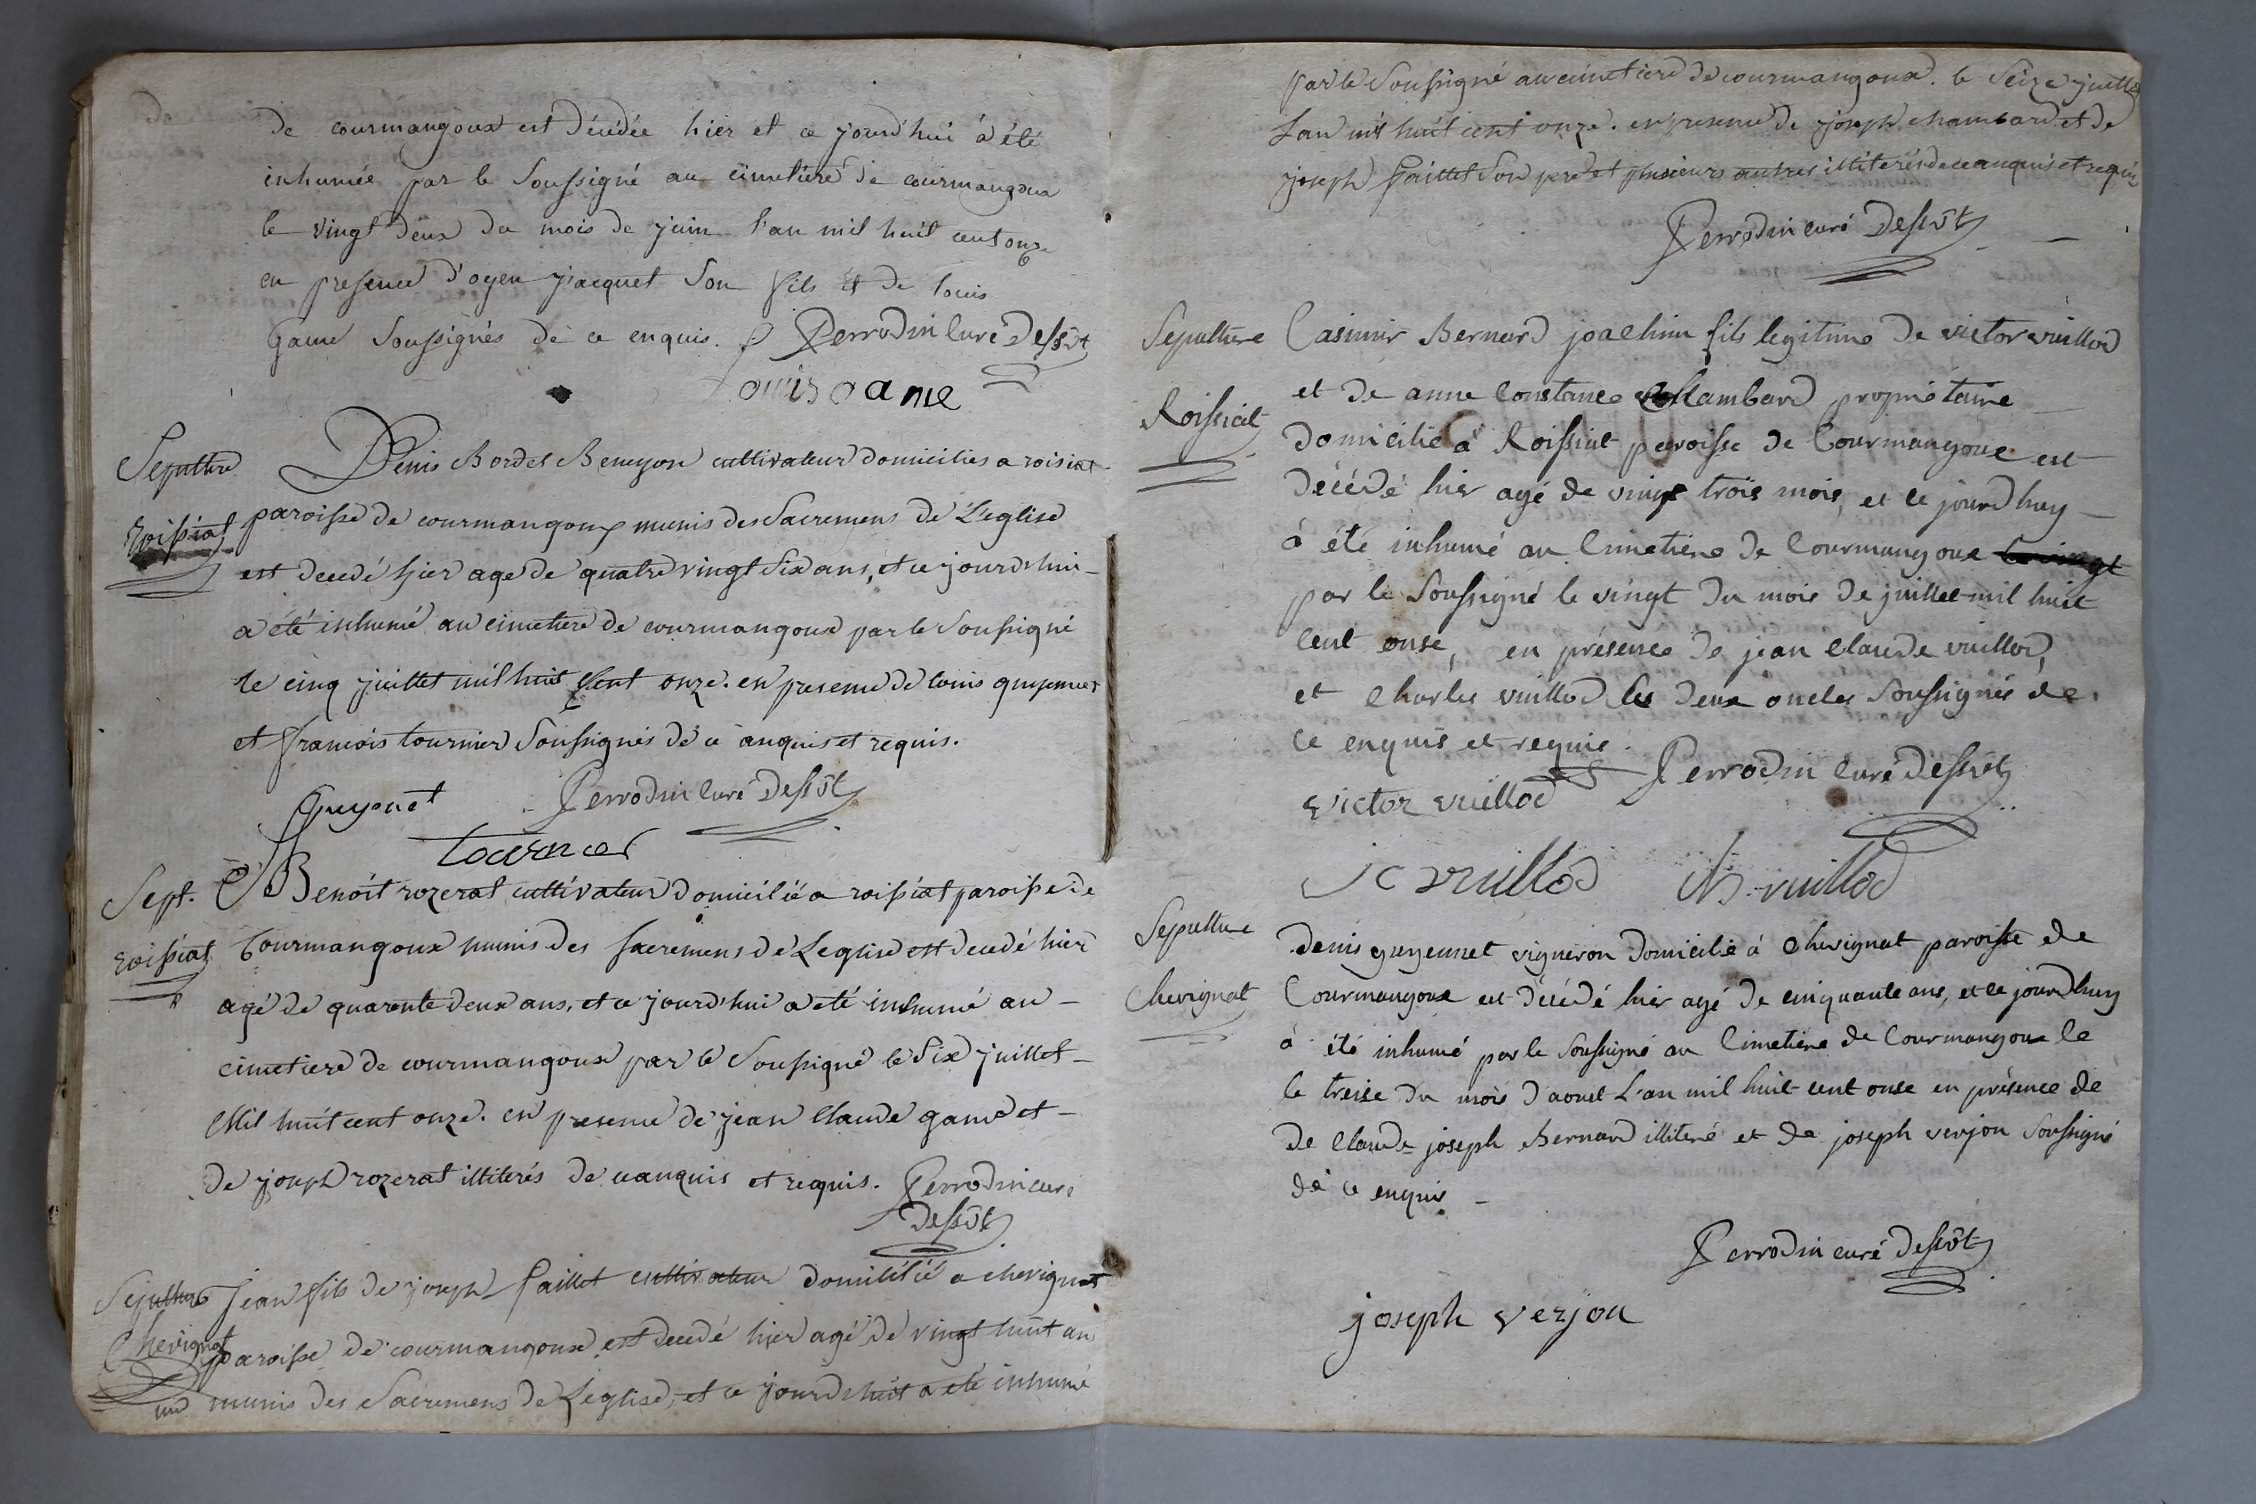 de courmangoux est décédée hier et ce jourd'hui à été
inhumée par le Soussigné au cimetiére de courmangoux
le vingt deux du mois de juin l'an mil huit cent onze
en presence d'oyen jacquet Son fils et de louis
Game Soussignés de ce enquis. Perrodin Curé Dessvt
Louis Game
Sepulture
Denis Bordet Beneyon cultivateur domicilies a roisiat
Roissiat
paroisse de courmangoux munis des Sacremens de L'eglise
est decedé hier age de quatre vingt Six ans, et ce jourd'hui
a été inhumé au cimetiere de courmangoux par le Soussigné
le cinq juillet mil huit Cent onze. en presence de louis guyennet
et francois tournier Soussignés de ce anquis et requis.
Guyenet Perrodin Curé Dessvt
tournier
Sept. Benoit rozerat cultivateur domicilié a roissiat paroisse de
roissiat Courmangoux munis des Sacremens de L'eglise est decedé hier
agé de quarente deux ans, et ce jourd'hui a eté inhumé au
cimetiere de courmangoux par le Soussigné le Six juillet
Mil huit cent onze. en presence de jean Claude game et
de joseph rozerat illiterés de ce anquis et requis. Perrodin curé
Dessvt
Sepulture Jean fils de joseph faillet cultivateur domicilié a chevignat
Chevignat paroisse de courmangoux est decedé hier agé de vingt huit an
munis des Sacremens de L'eglise, et ce jourd'hui a eté inhumé
par le Soussigné au cimetiere de courmangoux. le Seize juillet
L'an mil huit cent onze. en presence de joseph chambard et de
joseph faillet Son pere et plusieurs autres illiterés de ce anquis et requis
Perrodin curé Dessvt
Sepulture
Casimir Bernard joachim fils legitime de victor vuillod
et de anne Constance Chambard propriétaire
Roissiat
domicilié à Roissiat paroisse de Courmangoux est
décédé hier agé de vingt trois mois, et ce jourdhuy
à été inhumé au Cimetiére de Courmangoux le vingt
par le Soussigné le vingt du mois de juillet mil huit
Cent onse, en présence de jean Claude vuillod,
et Charles vuillod les deux oncles Soussignés de
ce enquis et requis.
Perrodin Curé Dessvt
victor vuillod
j c vuillod Ch vuillod
Sepulture
denis guyennet vigneron domicilié à Chevignat paroisse de
Chevignat
Courmangoux est décédé hier agé de cinquante ans, et ce jourdhuy
à été inhumé par le Soussigné au Cimetiére de Courmangoux le
le treise du mois d'aoust L'an mil huit cent onse en présence de
de Claude joseph Bernard illiteré et de joseph verjon Soussigné
de ce enquis
Perrodin curé Dessvt
joseph verjon